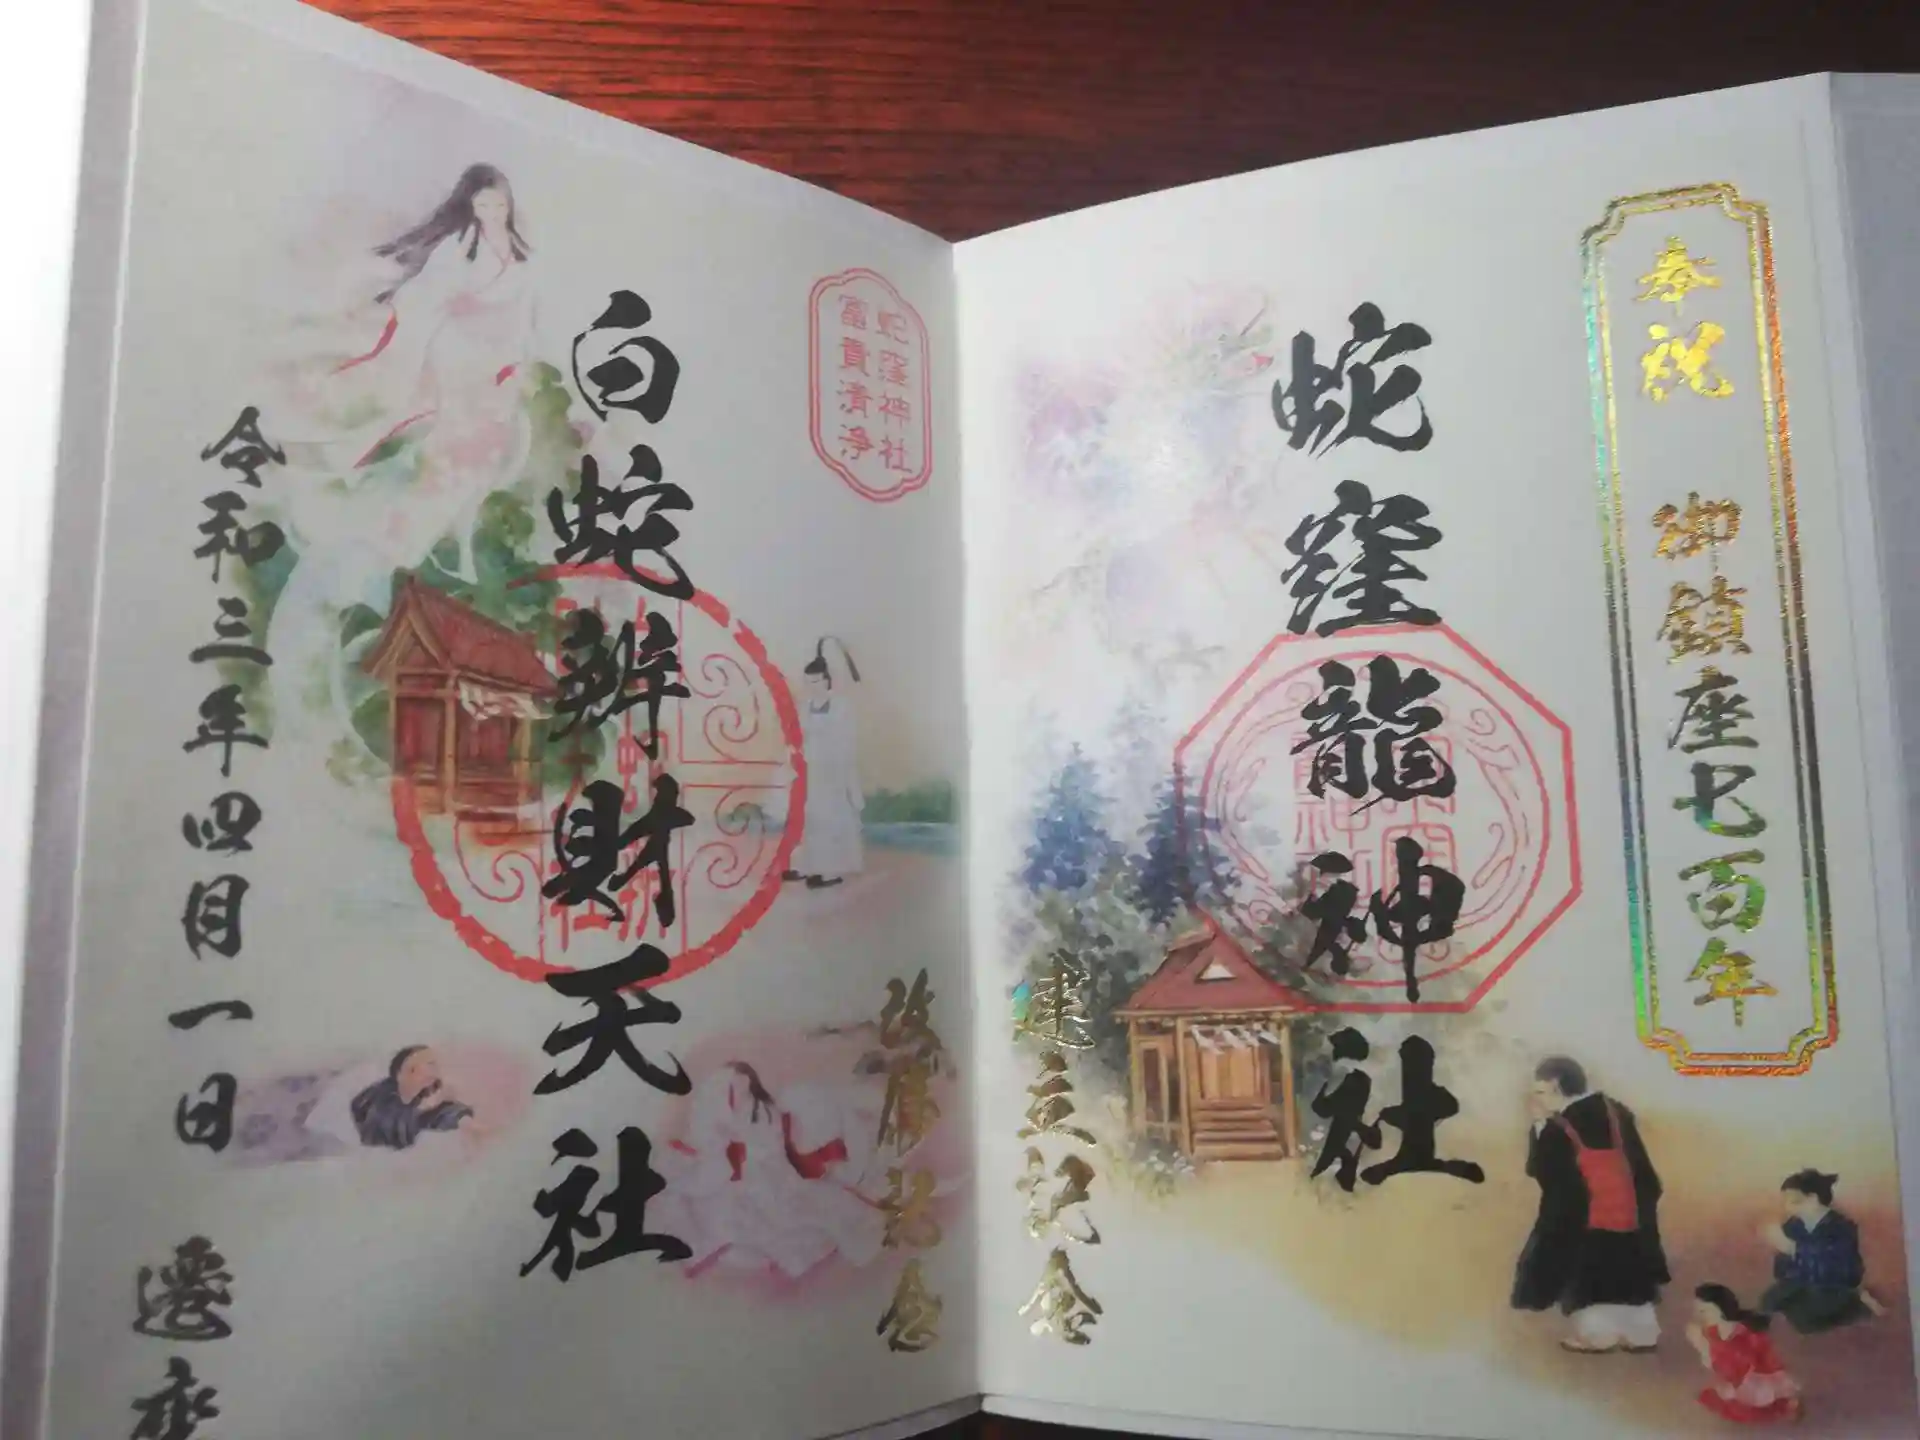 奉祝 御鎮座七百年
蛇窪龍神社
建立記念
改修記念
蛇窪神社
富貴清浄
白蛇辨財天社
令和三年四月一日 遷座